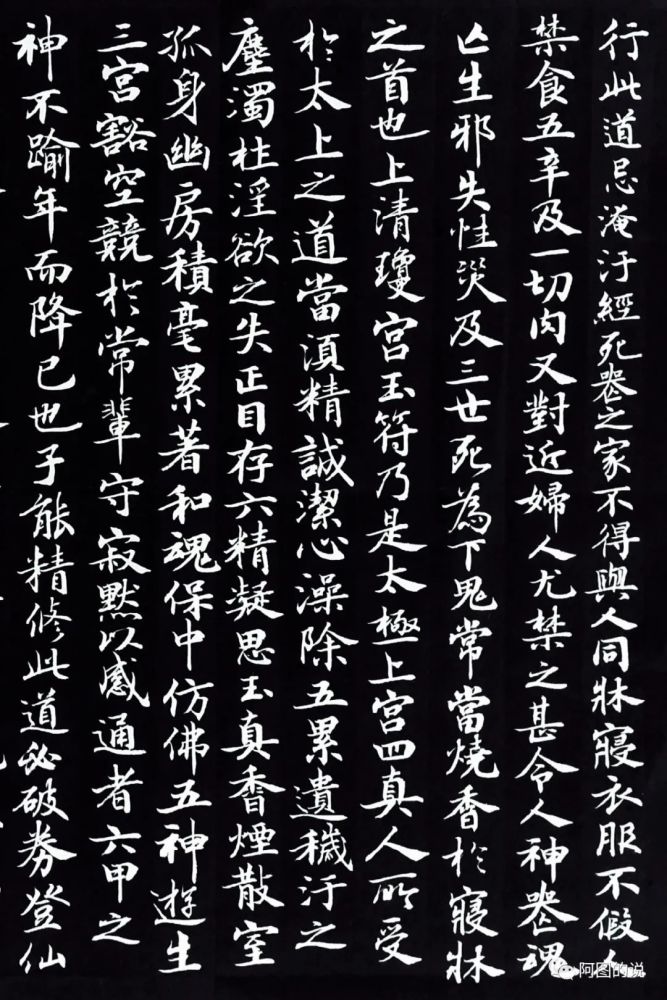 行此道忌淹汙經死喪之家不得與人同牀寢衣服不假人
禁食五辛及一切肉又對近婦人尤禁之甚令人神喪魂
亡生邪失性災及三世死為下鬼常當燒香於寢牀
之首也上清瓊宮玉符乃是太極上宮四真人所受
於太上之道當須精誠潔心澡除五累遺穢汙之
塵濁杜淫欲之失正目存六精凝思玉真香煙散室
孤身幽房積毫累著和魂保中仿佛五神遊生
三宮豁空競於常輩守寂默以感通者六甲之
神不踰年而降已也子能精修此道必破券登仙
阿图的说